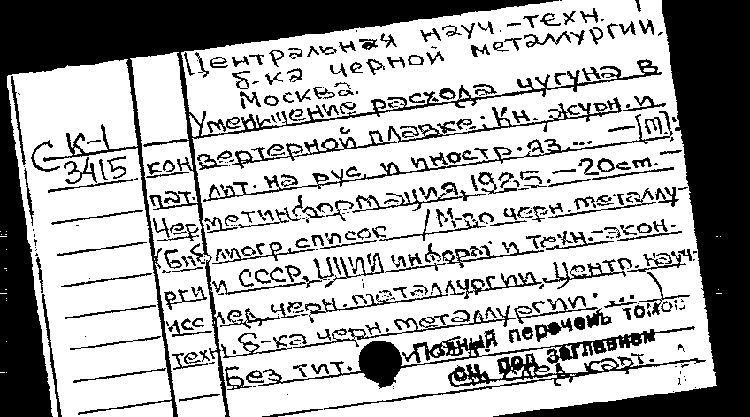 Центральная науч.-техн.
б-ка черной металлургии.
Москва.
Уменьшение расхода чугуна в
конвертерной плавке: Кн. журн. и
пат. лит. на рус. и иностр. яз... — [М]:
Черметинформация, 1985. — 20 см. —
(Библиогр. список / М-во черн. металлу-
ргии СССР, ЦНИИ информ и техн.-экон.
исслед. черн. металлургии, Центр. науч-
техн. б-ка черн. металлургии. ...)
Без тит.
С К-1
3415
Полный перечень томов
см. под заглавием
след. карт.